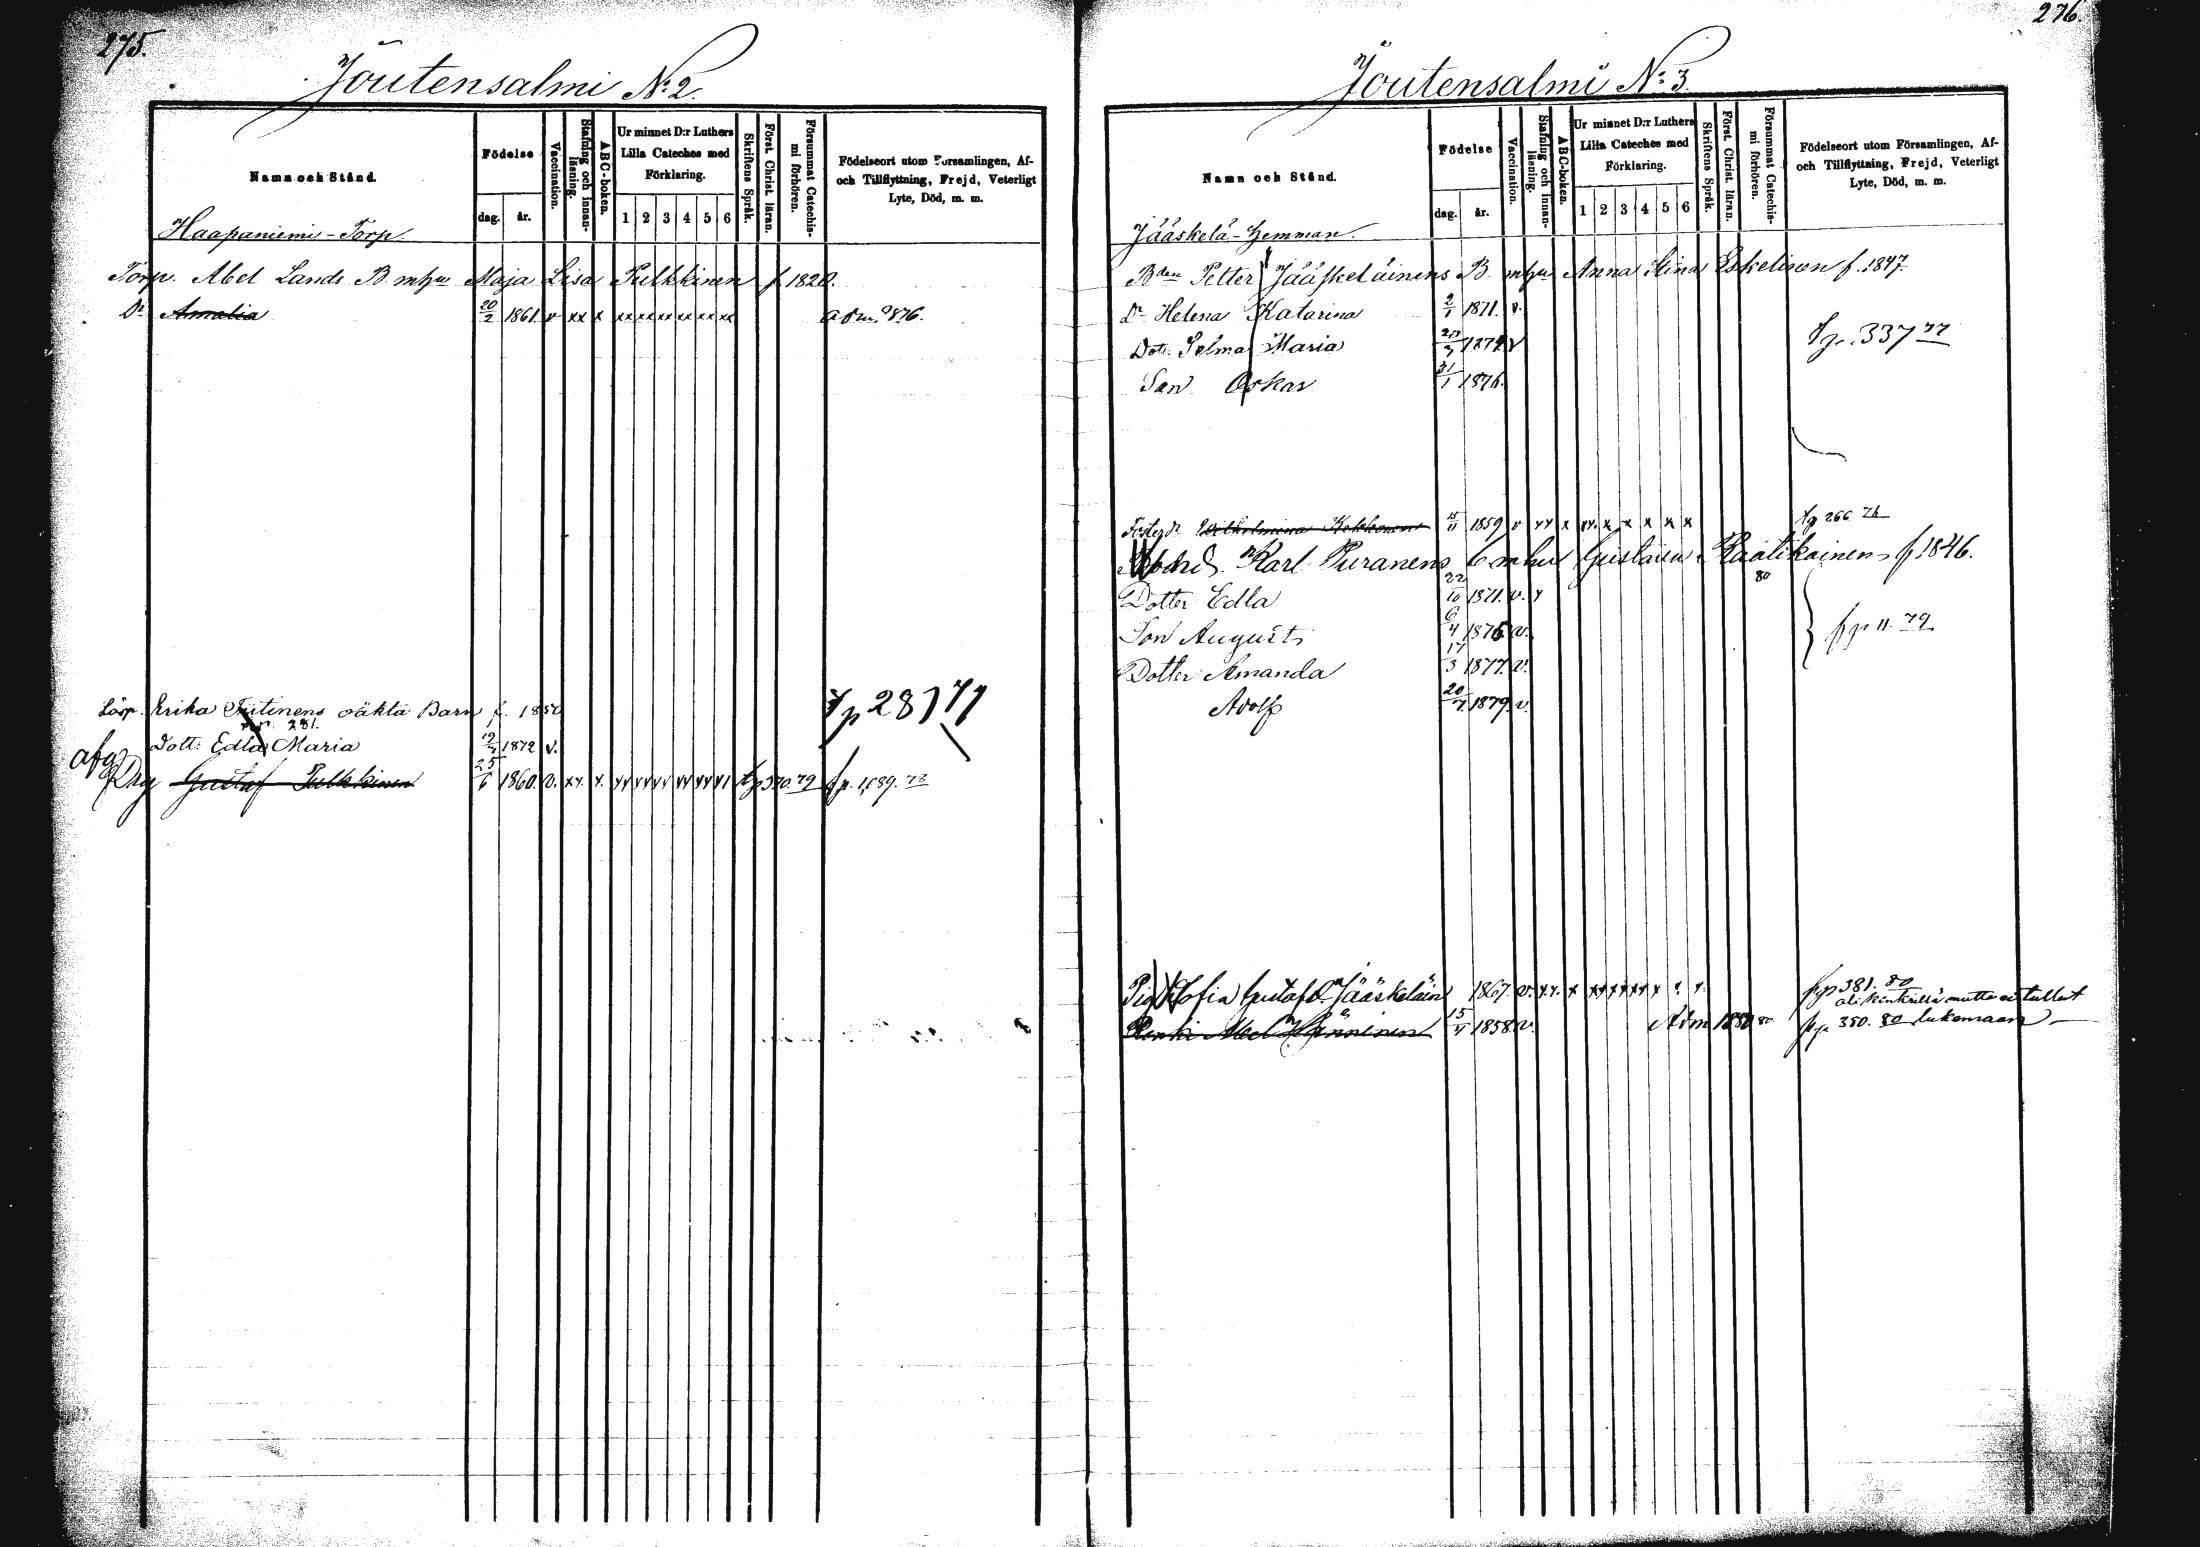 275.
Joutensalmi No 2.
Namn och Stånd.
Födelse
dag.
år.
Vaccination.
Stafning och innan-
läsning.
ABC-boken.
Ur minnet D:r Luthers
Lilla Cateches med
Förklaring.
1 2 3 4 5 6
Skriftens Språk.
Först. Christ. läran.
Försummat Catechis-
mi förhören.
Födelseort utom Församlingen, Af-
och Tillflyttning, Frejd, Veterligt
Lyte, Död, m. m.
Haapaniemi - Torp.
Torp. Abel Lands B. mhu Maja Lisa Pulkkinen f. 1820.
Dr Amalia 20/2 1861. v xx x xx xx xx xx xx xx adm. 1876.
Lösp. Erika oäkta Barn f. 1850
281.
Dott: Edla Maria 19/7 1872 v.
afg Drg Gustaf Pulkkinen 25/6 1860. v. xx. x. tp 370. 79
276.
Joutensalmi No 3.
Namn och Stånd.
Födelse
dag.
år.
Vaccination.
Stafning och innan-
läsning.
ABC-boken.
Ur minnet D:r Luthers
Lilla Cateches med
Förklaring.
1 2 3 4 5 6
Skriftens Språk.
Först. Christ. läran.
Försummat Catechis-
mi förhören.
Födelseort utom Församlingen, Af-
och Tillflyttning, Frejd, Veterligt
Lyte, Död, m. m.
Jääskelä - Hemman.
Bden Petter Jääskeläinens B. mhu Anna Stina Eskelinen f. 1847.
Dr Helena Katarina 2/1 1871. v.
Dott: Selma Maria v
fp. 337 77
Son Oskar 31/1 1876.
Fosterdr Wilhelmina Kokkonen 15/11 1859 v xx x xx. x x x x x tp 266. 76
Karl Puranens b mhu Gustava Raatikainen f 1846.
80
Dotter Edla 22/10 1871. v. x
Son August 6/4 1876 v.
fp 11. 79
Dotter Amanda 17/3 1877. v.
Adolf 20/7 1879. v.
Pig Sofia Gustafd. Jääskeläin 1867. v. x.x. x fp 381. 80
oli kinkerillä mutta ei tullut
Renki Abel Hänninen 15/11 1858. v. Adm 1880 80 fp 350. 80 lukemaan